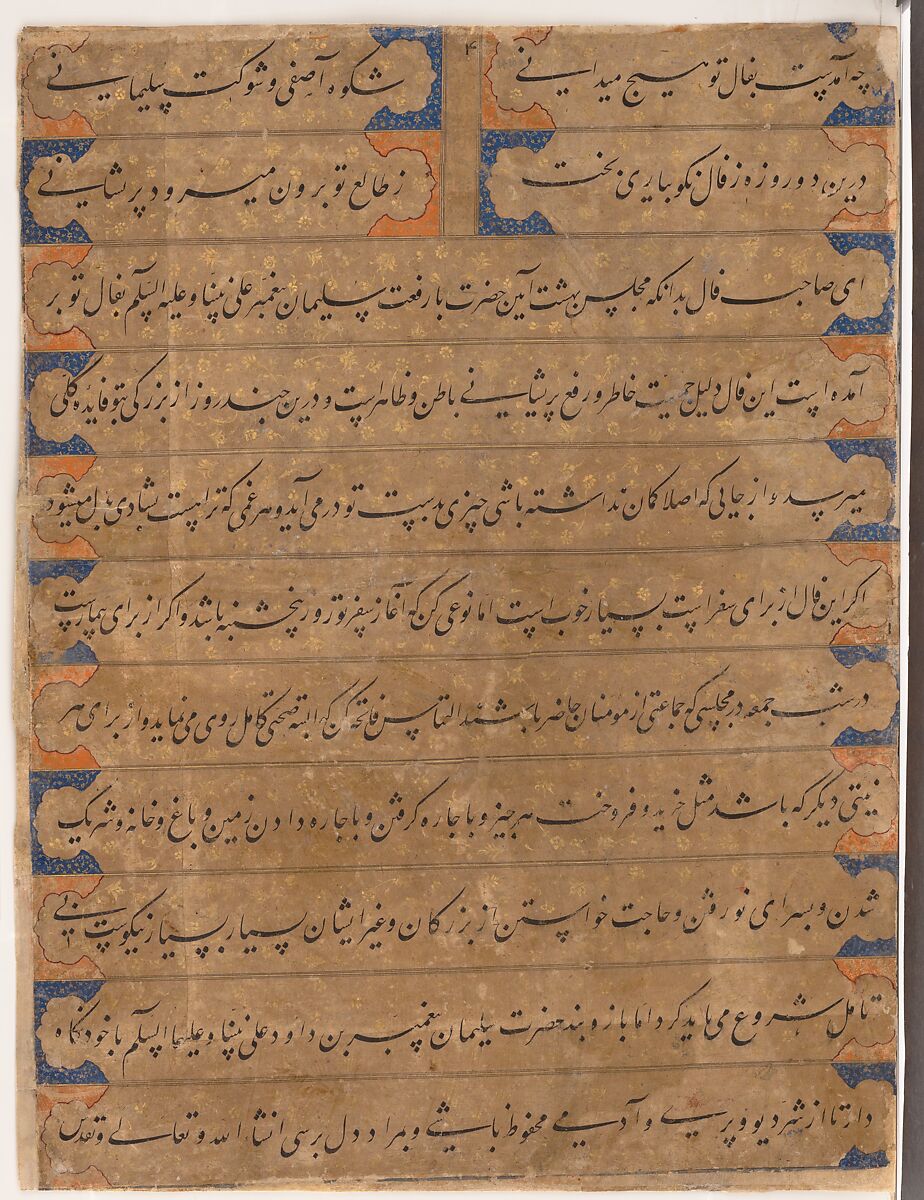 ۴
چه آمدست بفال تو هیچ میدانی
شکوه آصفی و شوکت سلیمانی
درین دو روزه ز فال نکو بیاری بخت
ز طالع تو برون میرود پریشانی
ای صاحب فال بدانکه مجلس بهشت آیین حضرت با رفعت سلیمان پیغمبر علی نبینا و علیه السلام بفال تو بر
آمده است این فال دلیل جمعیت خاطر و رفع پریشانی باطن و ظاهرست و درین چند روز از بزرکی بتو فایده کلی
میرسد و از جایی که اصلا کمان نداشته باشی چیزی بدست تو در می آید و هر غمی که تراست بشادی بدل میشود
اکر این فال از برای سفر است بسیار خوب است اما نوعی کن که آغاز سفر تو روز پنجشنبه باشد و اکر از برای بیمارست
در شب جمعه در مجلسی که جماعتی از مومنان حاضر باشند التماس فاتحه کن که البته صحتی کامل روی می نماید و از برای هر
نیتی دیکر که باشد مثل خرید و فروخت هر چیز و با جاره کرفتن و با جاره دادن زمین و باغ و خانه و شریک
شدن و بسرای نو رفتن و حاجت خواستن از بزرکان و غیر ایشان بسیار بسیار نیکوست بی
تامل شروع می باید کرد اما بازوبند حضرت سلیمان پیغمبر بن داود علی نبینا و علیهما السلام با خود نکاه
دار تا از شر دیو و پری و آدمی محفوظ باشی و بمراد دل برسی انشاء الله تعالی و تقدس